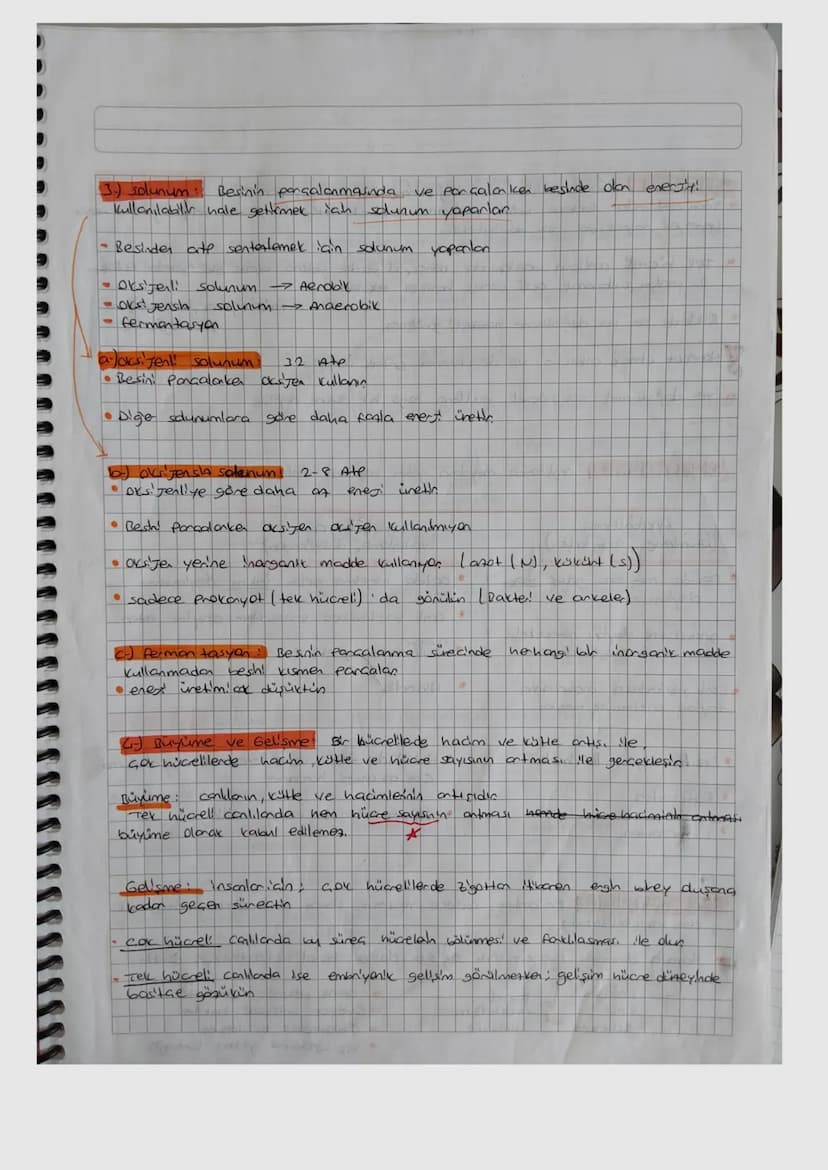 3.) Solunum: Besinin parçalanmasında ve parçalanırken besinde olan enerjiyi
kullanılabilir hale getirmek için solunum yaparlar
- Besinden atp sentezlemek için solunum yaparlar
- Oksijenli solunum → Aerobik
- Oksijensiz solunum → Anaerobik
- fermantasyon
a-) oksijenli solunum: 32 Atp
• Besini Parçalarken oksijen kullanır
• Diğer solunumlara göre daha fazla enerji üretir.
b-) oksijensiz solunum: 2-8 Atp
• oksijenliye göre daha az enerji üretir
• Besini parçalarken oksijen kullanılmıyor
• oksijen yerine inorganik madde kullanıyor (azot (N), kükürt (s))
• sadece prokaryot (tek hücreli)'da görülür (Bakteri ve arkeler)
c-) fermantasyon: Besinin parçalanma sürecinde herhangi bir inorganik madde
kullanmadan besini kısmen parçalar
• enerji üretimi çok düşüktür
4-) Büyüme ve Gelişme: Bir hücrelilerde hacim ve kütle artışı ile,
çok hücrelilerde hacim, kütle ve hücre sayısının artması ile gerçekleşir.
Büyüme: canlıların, kütle ve hacimlerinin artışıdır
Tek hücreli canlılarda hem hücre sayısının artması hemde hücre hacminin artması
büyüme olarak kabul edilemez.
Gelişme: insanlar için; çok hücrelilerde zigottan itibaren ergin birey
kadar geçen süreçtir
- çok hücreli canlılarda bu süreç hücrelerin bölünmesi ve farklılaşması ile olur
- Tek hücreli canlılarda ise embriyonik gelişim görülmezken; gelişim hücre düzeyinde
basitçe gözükür